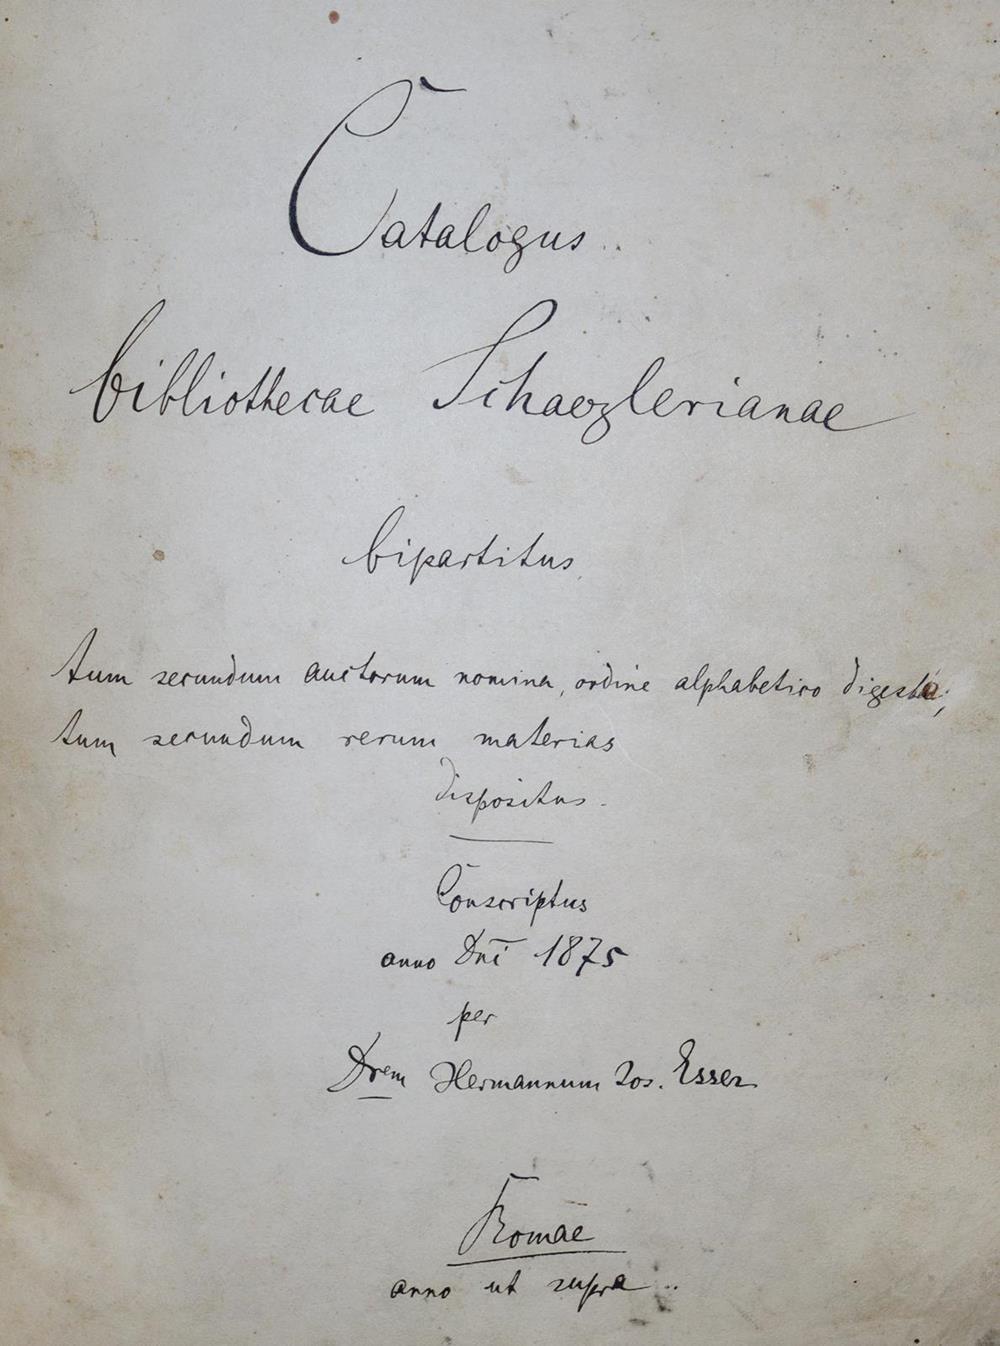 Catalogus
bibliothecae Schaezlerianae
bipartitus
tum secundum auctorum nomina, ordine alphabetico digesta;
tum secundum rerum materias
dispositus.
Conscriptus
anno Dnī 1875
per
Drem Hermannum Jos. Esser
Romae
anno ut supra